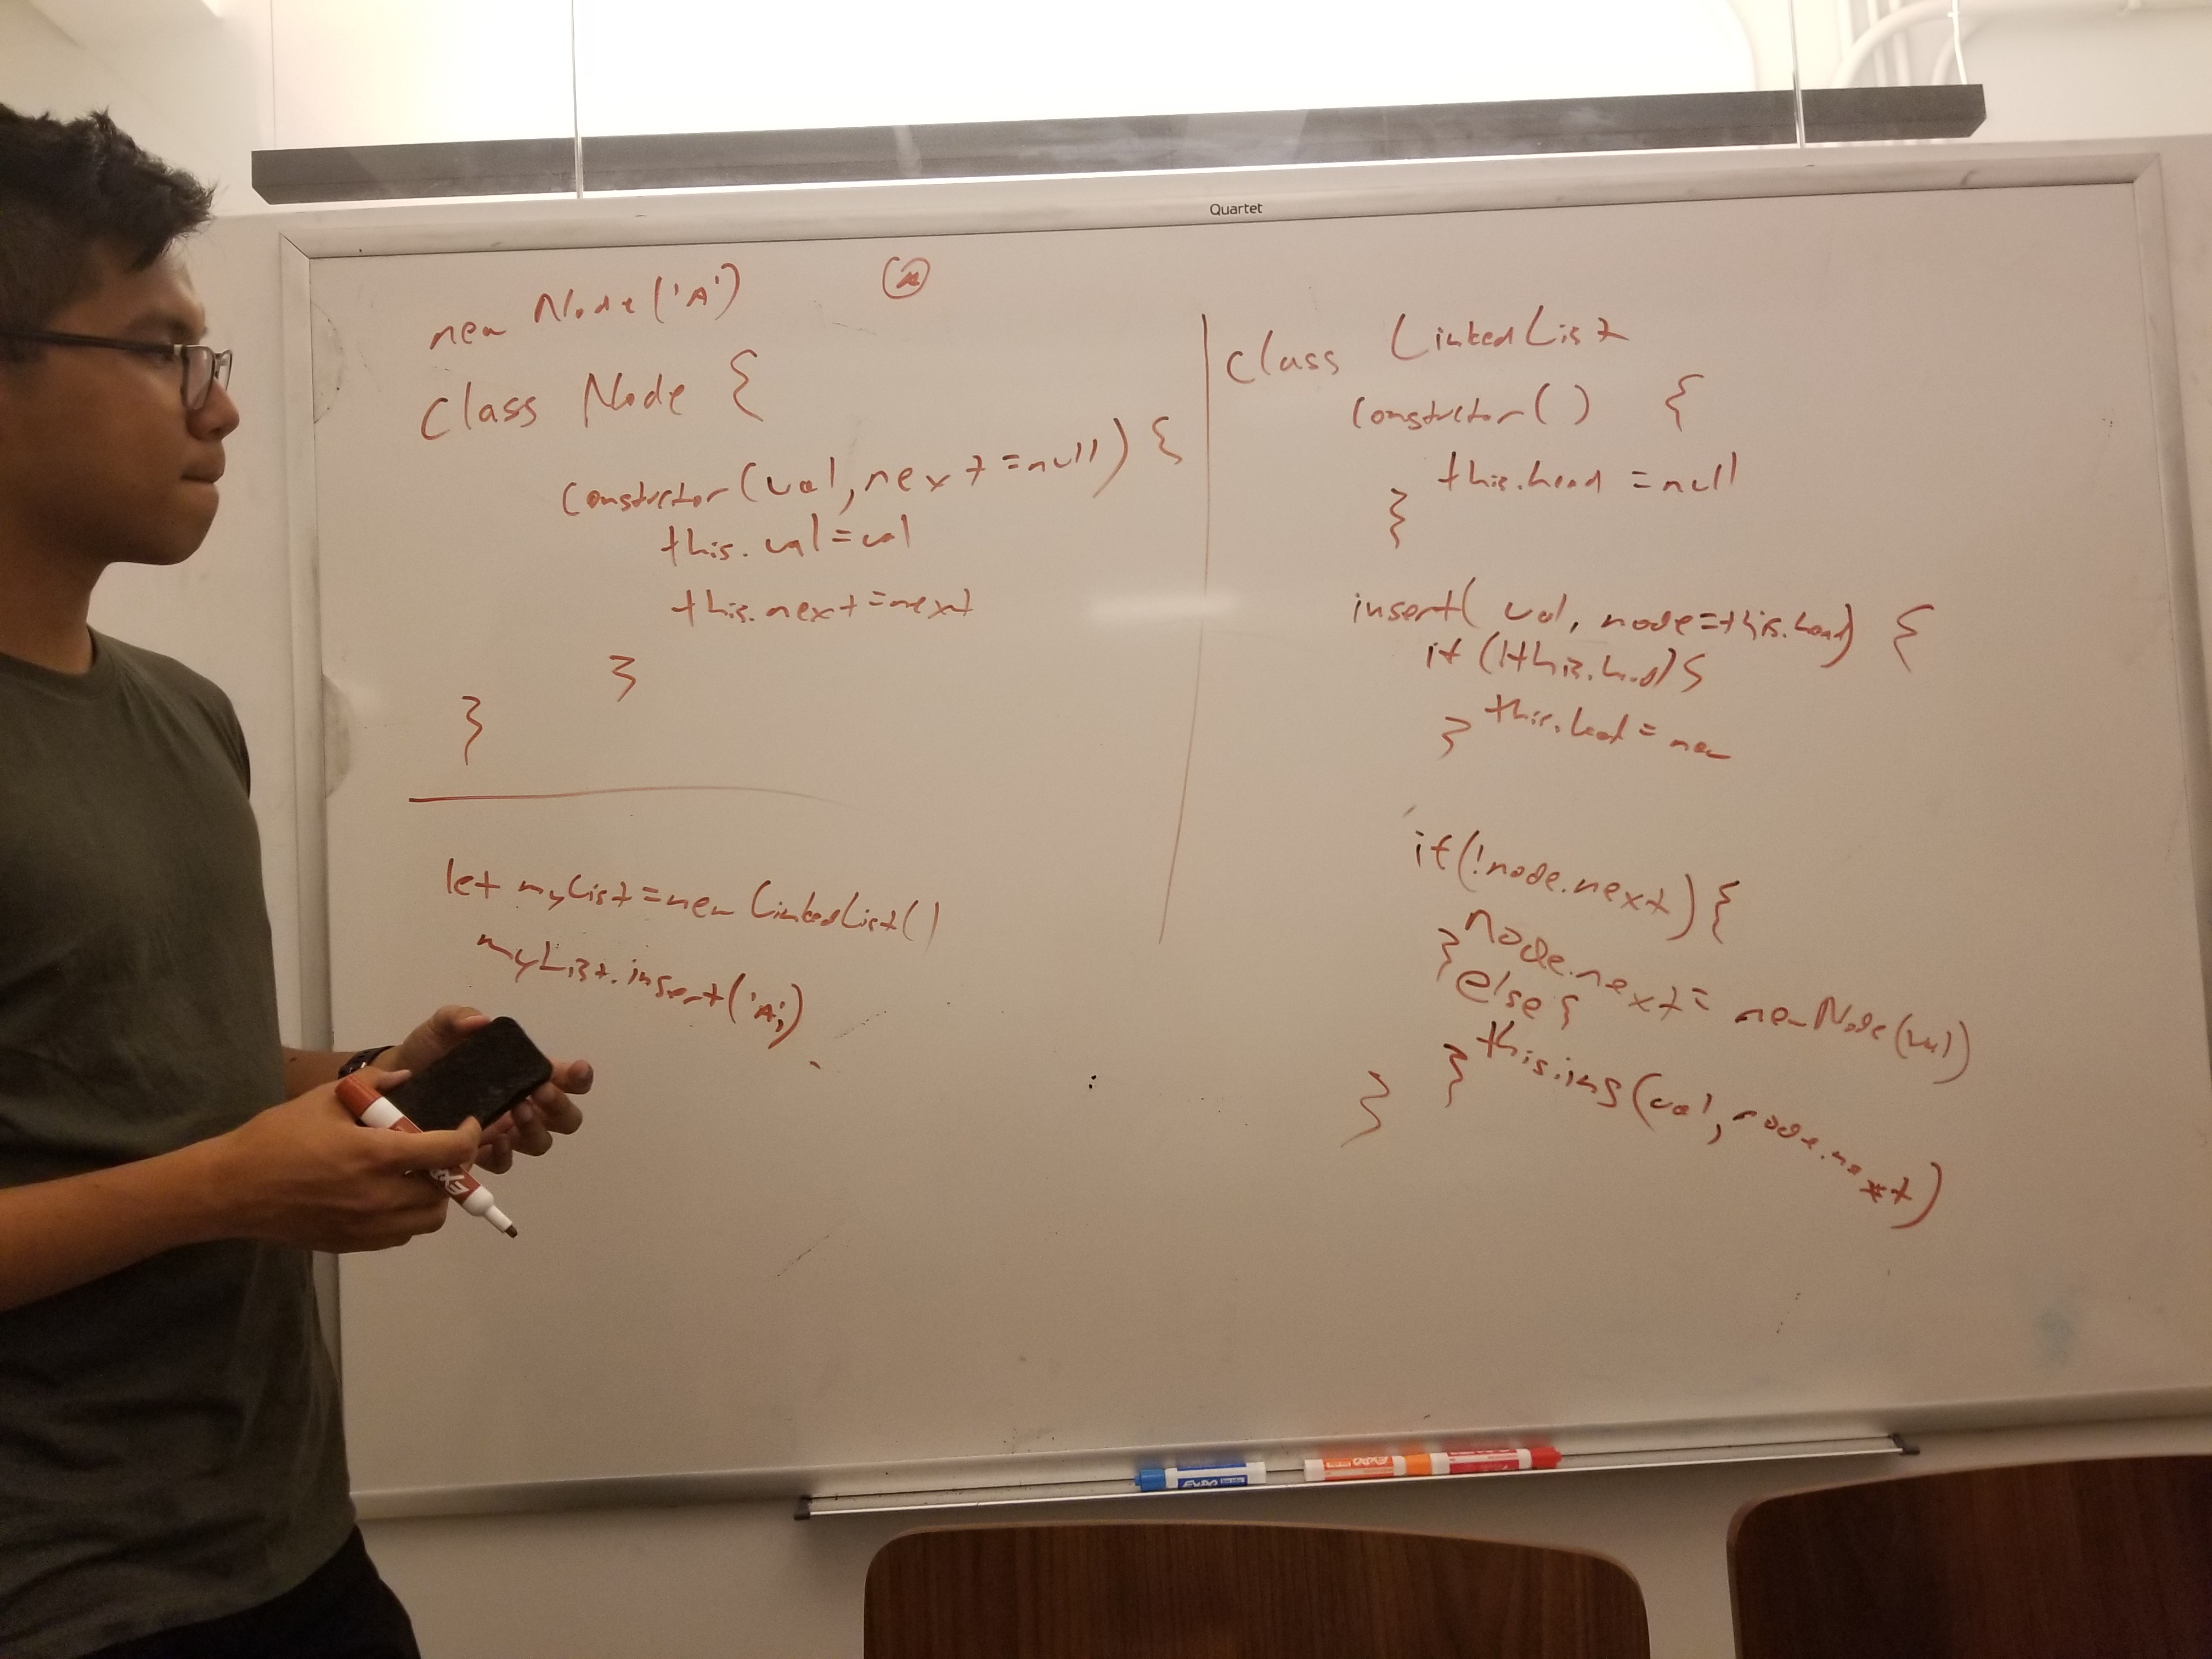 Quartet
new Node('A')
A
class Node {
constructor(val, next=null) {
this.val=val
this.next=next
}
}
let myList=new LinkedList()
myList.insert('A')
class LinkedList
constructor() {
this.head=null
}
insert( val, node=this.head) {
if (!this.head){
this.head= new
}
if(!node.next){
node.next= new Node(val)
}else{
this.ins(val, node.next)
}
}
EXPO
EXPO
EXPO